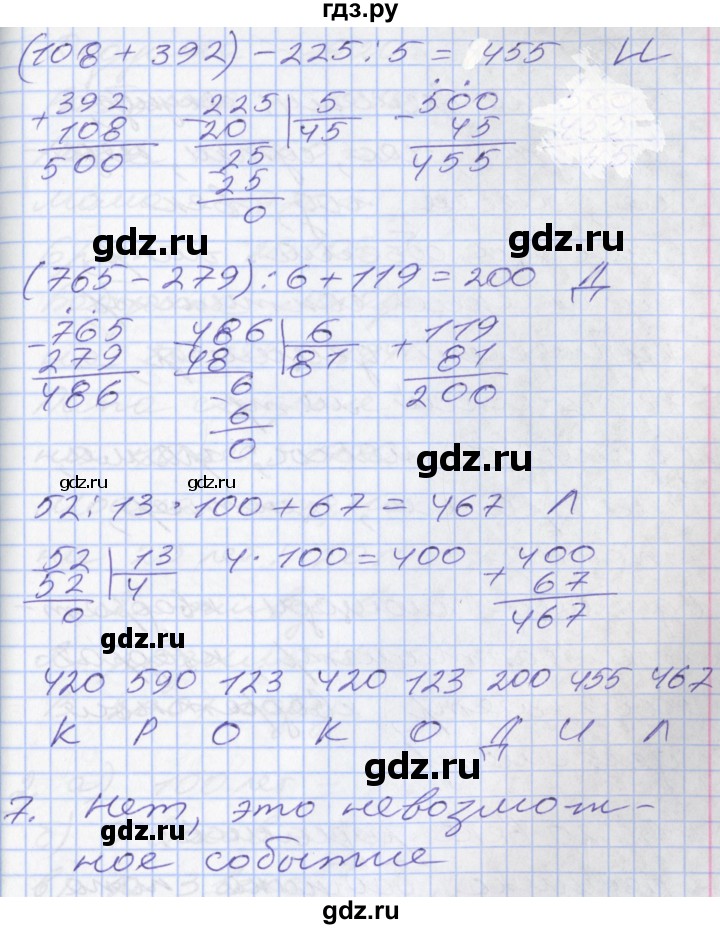 гдз.ру
(108 + 392) - 225 : 5 = 455 И
+ 392 - 225 | 5 - 500
108 20 45 45
500 25 455
- 25
0
gdz.ru gdz.ru
(765 - 279) : 6 + 119 = 200 Д
- 765 - 486 | 6 + 119
279 48 81 81
486 6 200
- 6
0
gdz.ru
gdz.ru gdz.ru
52 : 13 · 100 + 67 = 467 Л
- 52 | 13 4 · 100 = 400 + 400
52 4 67
0 467
gdz.ru
420 590 123 420 123 200 455 467
К Р О К О Д И Л
gdz.ru
7. Нет, это невозмож-
gdz.ru
ное событие
gdz.ru